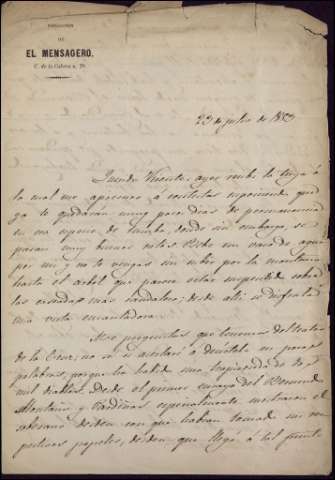 REDACCION
DE
EL MENSAGERO.
C. de la Cabeza n. 29.
23 de julio de 1853
Querido Vicente: ayer recibí la tuya á
la cual me apresuro á contestar suponiendo que
ya te quedarán muy pocos dias de permanencia
en donde sin embargo, se
pasan muy buenos ratos. Pocho un recado aquí
por mi y no te vengas sin subir por la montaña
hasta el arbol que parece estar suspendido sobre
desde alli se disfruta
una vista encantadora.
Me preguntas que tenemos del teatro
de la Cruz; no se si acertaré á decirtelo en pocas
palabras, porque ha habido una de dos
mil diablos. Desde el primer ensayo del
Montaño y Pardiñas especialmente mostraron el
soberano desden con que habian tomado sus res
pectivos papeles, desden que llegó á tal punto